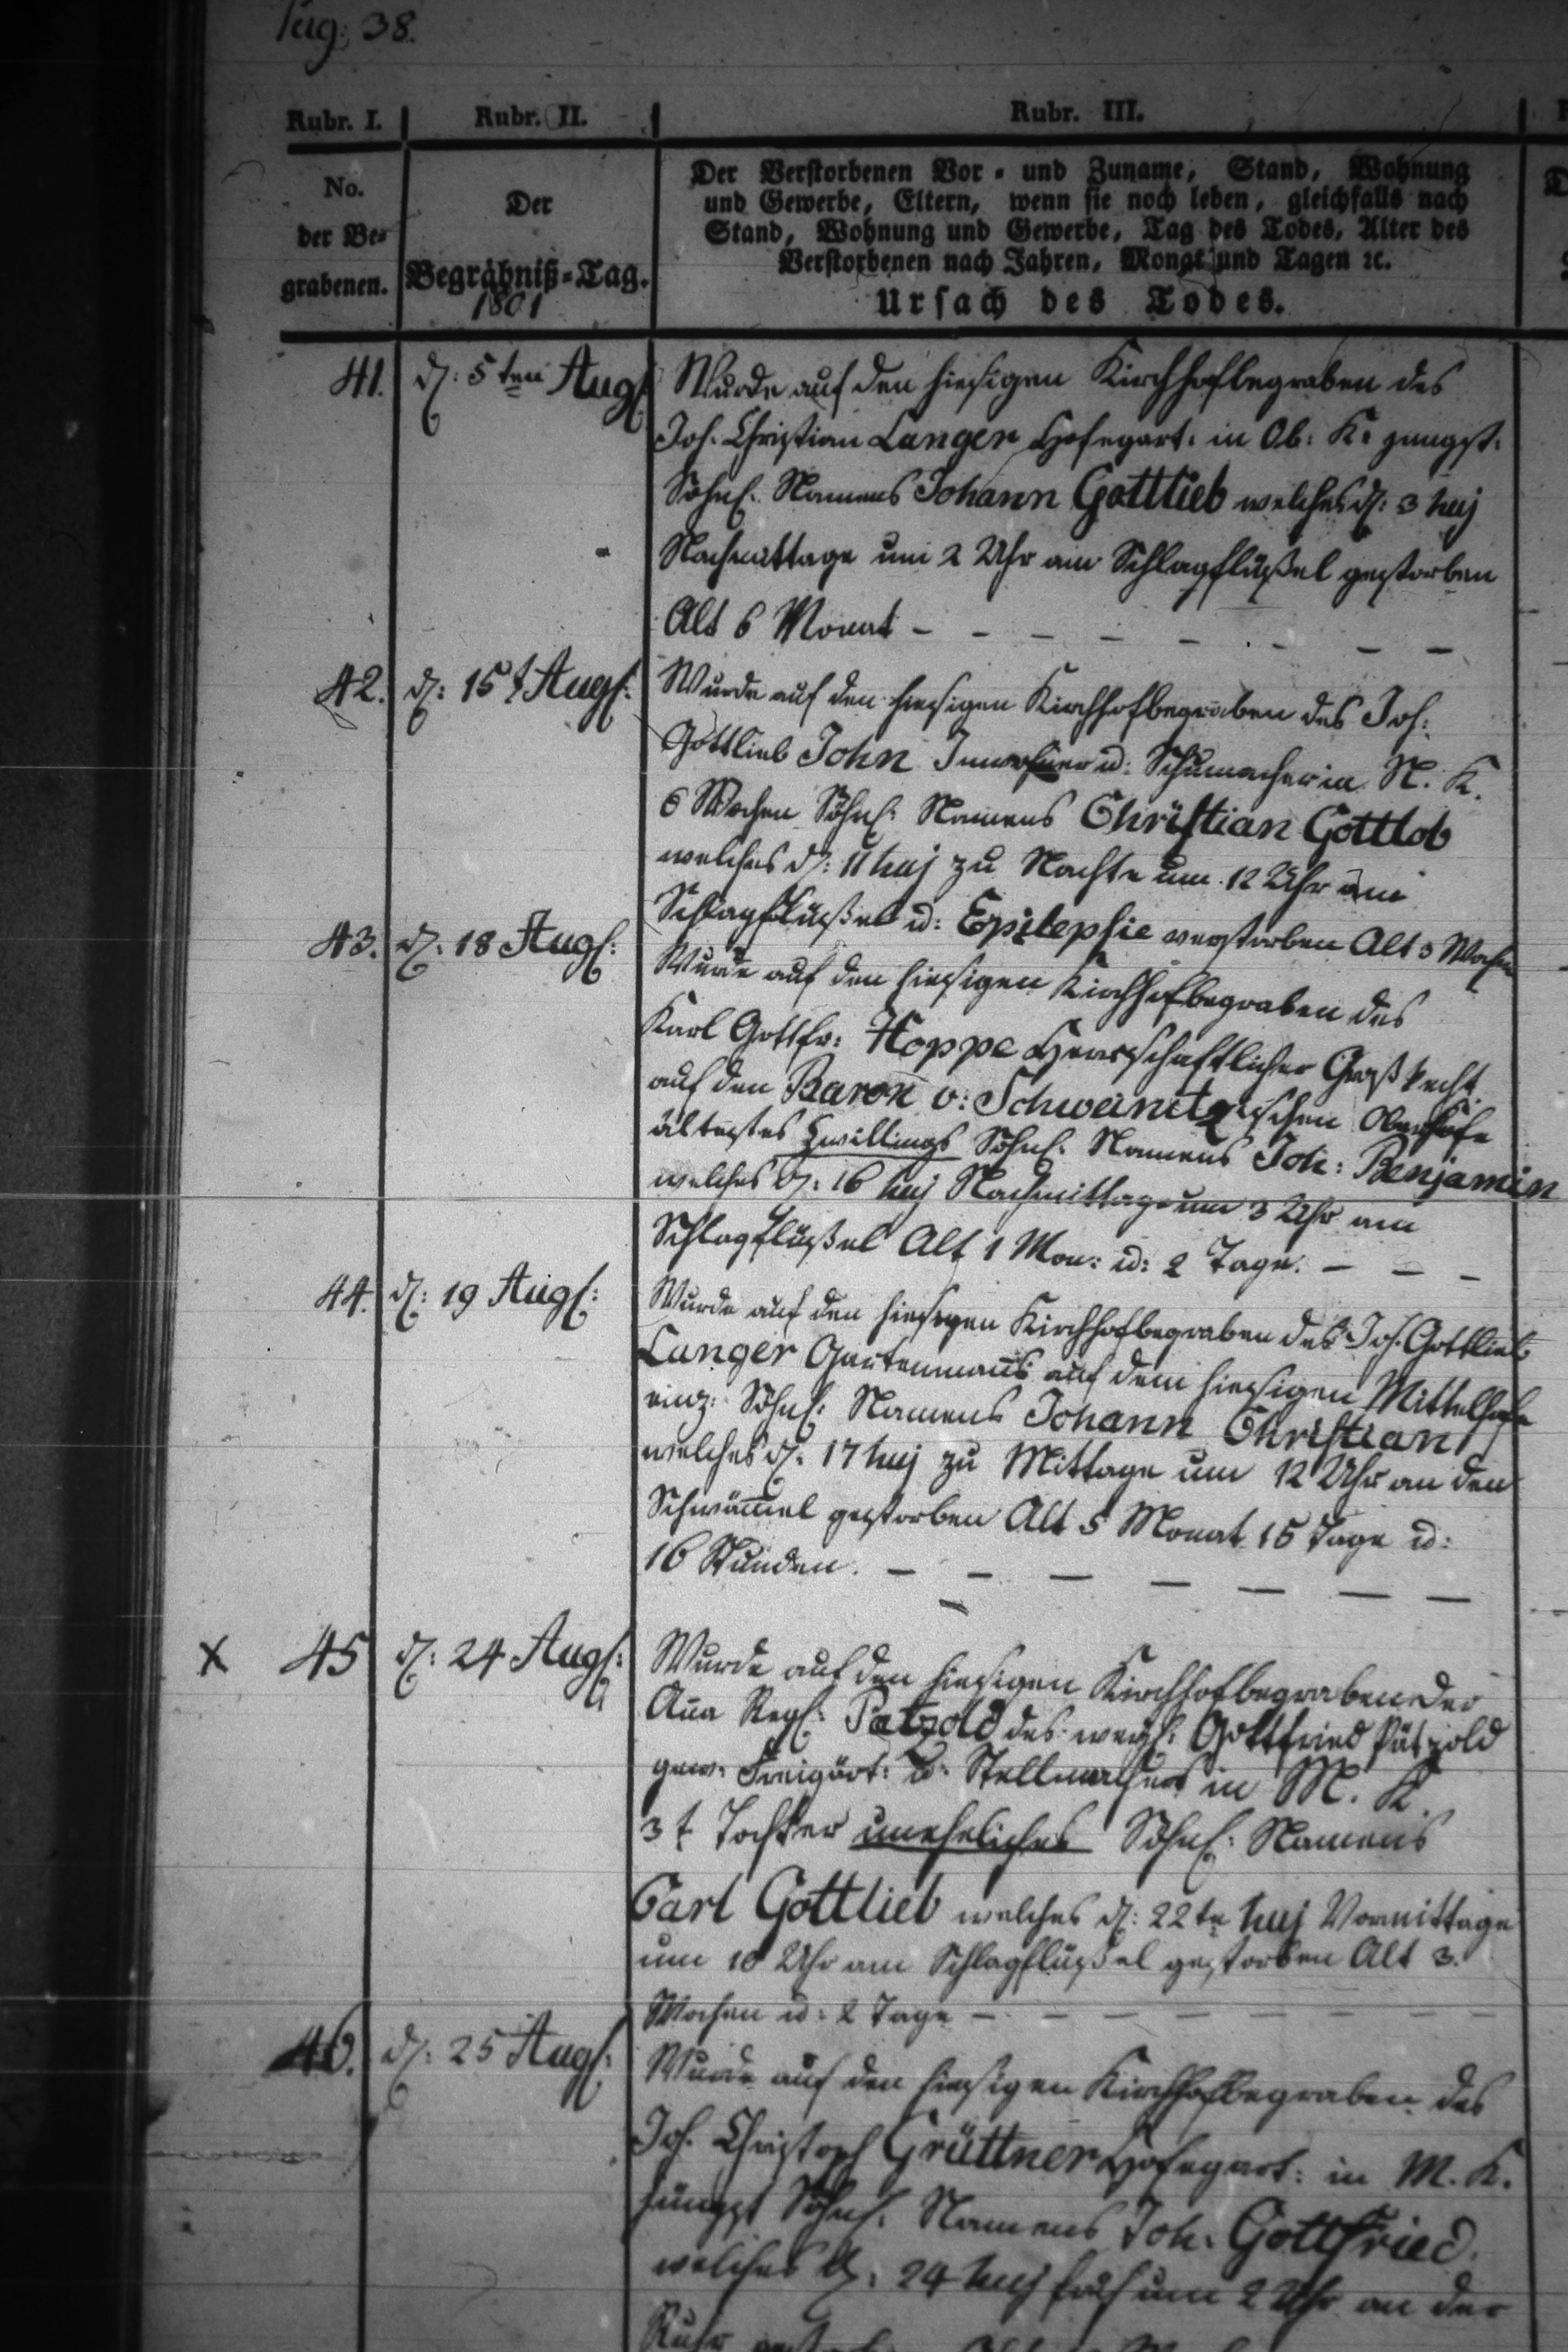 Pag: 38.
Rubr. I. Rubr. II. Rubr. III.
No.
der Be=
grabenen.
Der
Begräbniß=Tag.
1801
Der Verstorbenen Vor = und Zuname, Stand, Wohnung
und Gewerbe, Eltern, wenn sie noch leben, gleichfalls nach
Stand, Wohnung und Gewerbe, Tag des Todes, Alter des
Verstorbenen nach Jahren, Monat und Tagen ꝛc.
Ursach des Todes.
41. d: 5ten Aug: Wurde auf den hiesigen Kirchhof begraben des
Joh. Christian Langer Hofegärt: in Ob: K:
Söhnl. Namens Johann Gottlieb welches d: 3 huj
Nachmittage um 2 Uhr am Schlagflüßel gestorben
Alt 6 Monat – – – – – – – –
42. d: 15t Aug: Wurde auf den hiesigen Kirchhof begraben des Joh:
Gottlieb John Innwohner u: Schumacher in N. K.
Söhnl: Namens Christian Gottlob
welches d: 11 huj zu Nachts um 12 Uhr am
Schlagflüßel u: Epilepsie verstorben Alt 3 Wochen
43. d: 18 Aug: Wurde auf den hiesigen Kirchhof begraben des
Karl Gottfr: Hoppe Herrschaftlicher Großknecht
auf den Baron v: Schweinitzischen Oberhofe
ältestes Zwillings Söhnl. Namens Joh: Benjamin
welches d: 16 huj Nachmittage um 3 Uhr am
Schlagflüßel Alt 1 Mon: u: 2 Tage. – – –
44. d: 19 Aug: Wurde auf den hiesigen Kirchhof begraben des Joh. Gottlieb
Langer auf dem hiesigen Mittelhofe
einz: Söhnl: Namens Johann Christian
welches d: 17 huj zu Mittage um 12 Uhr an den
Schwämel gestorben Alt 5 Monat 15 Tage u:
16 Stunden. – – – – – – –
x 45 d: 24 Aug: Wurde auf den hiesigen Kirchhof begraben der
Aña Ros: Pätzold des weyl: Gottfried Pätzold
gew: Freigärt: u: Stellmachers in M. K.
3t Tochter uneheliches Söhnl: Namens
Carl Gottlieb welches d: 22te huj Vormittage
um 10 Uhr am Schlagflüßel gestorben Alt 3.
Wochen u: 2 Tage – – – – – – –
46. d: 25 Aug: Wurde auf den hiesigen Kirchhof begraben des
Joh. Christoph Grüttner Hofegärt: in M. K.
jüngst Söhnl. Namens Joh. Gottfried.
welches d: 24 huj früh um 2 Uhr an der
Ruhr